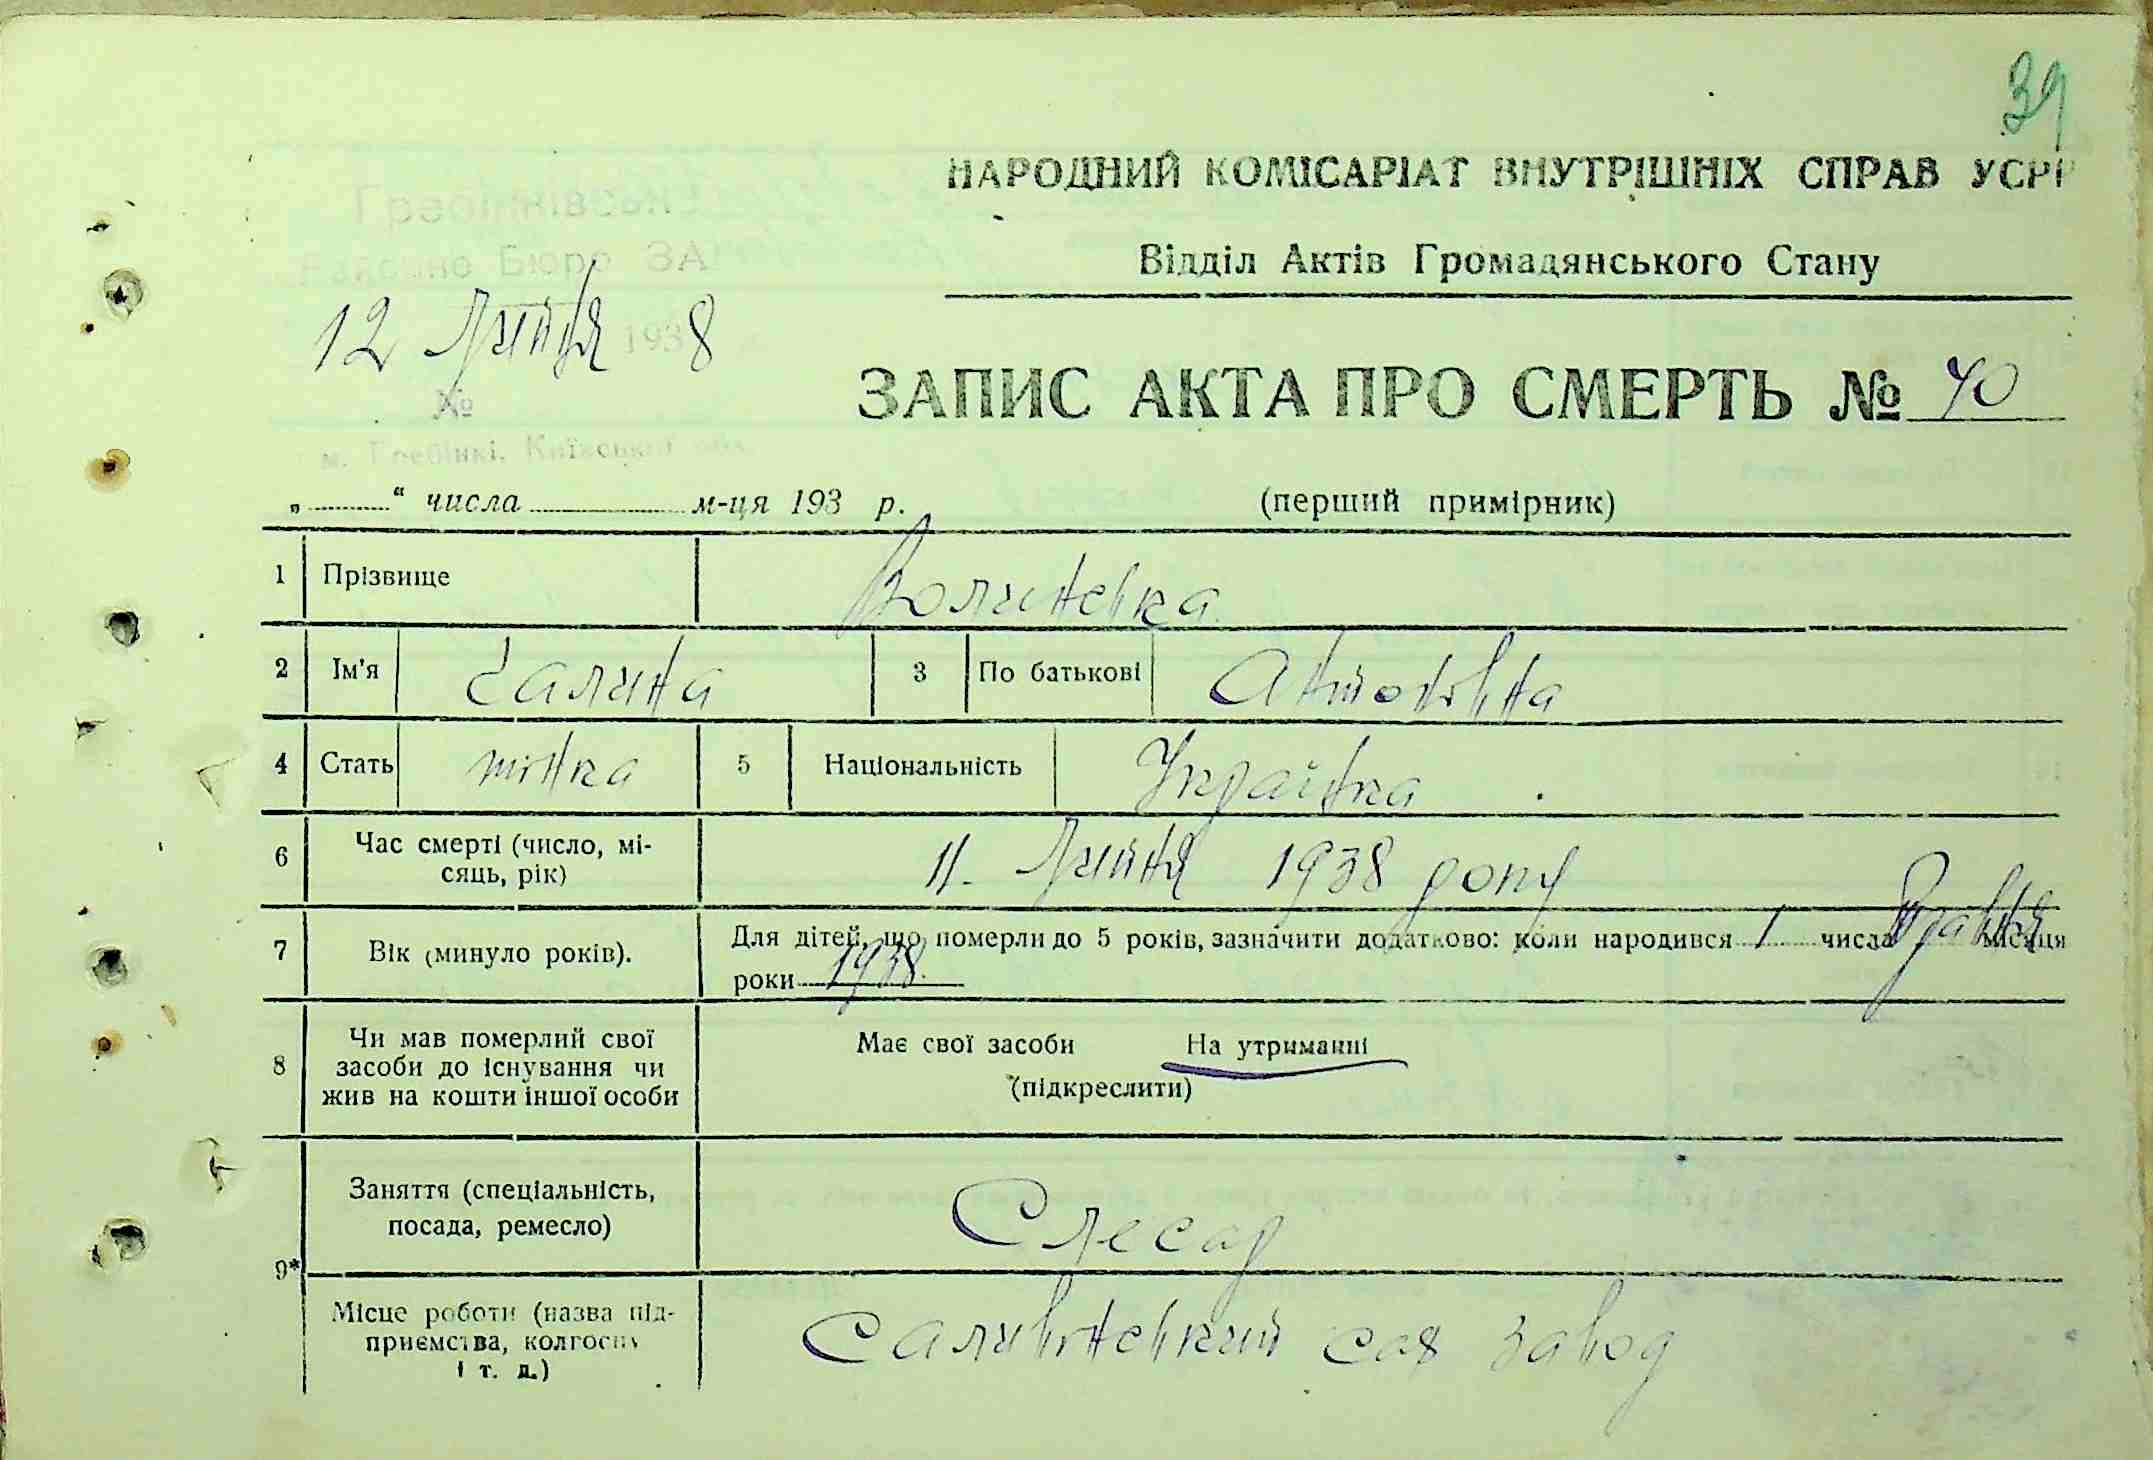 39
НАРОДНИЙ КОМІСАРІАТ ВНУТРІШНІХ СПРАВ УСРР
Відділ Актів Громадянського Стану
Гребінківське
Районне Бюро ЗАГС
12 липня 1938
№
м. Гребінкі, Київської обл.
ЗАПИС АКТА ПРО СМЕРТЬ № 40
„ “ числа м-ця 193 р. (перший примірник)
1 Прізвище Волинська
2 Ім'я Галина 3 По батькові Антонівна
4 Стать жінка 5 Національність Українка
6 Час смерті (число, мі-
сяць, рік) 11. липня 1938 року
7 Вік (минуло років). Для дітей, що померли до 5 років, зазначити додатково: коли народився 1 числа травня місяця
роки 1938.
8 Чи мав померлий свої
засоби до існування чи
жив на кошти іншої особи
Має свої засоби На утриманні
(підкреслити)
9* Заняття (спеціальність,
посада, ремесло) Слесар
Місце роботи (назва під-
приємства, колгоспу
і т. д.) Саливонський сах завод